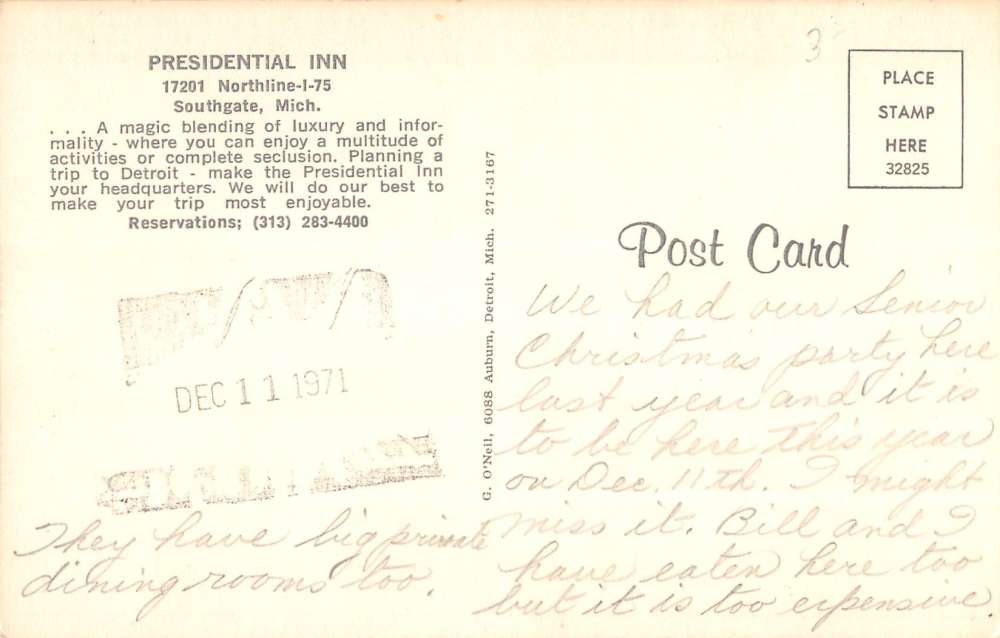 PRESIDENTIAL INN
17201 Northline-I-75
Southgate, Mich.
. . . A magic blending of luxury and infor-
mality - where you can enjoy a multitude of
activities or complete seclusion. Planning a
trip to Detroit - make the Presidential Inn
your headquarters. We will do our best to
make your trip most enjoyable.
Reservations; (313) 283-4400
DEC 11 1971
They have big private
dining rooms too.
G. O'Neil, 6088 Auburn, Detroit, Mich. 271-3167
3
PLACE
STAMP
HERE
32825
Post Card
We had our Senior
Christmas party here
last year and it is
to be here this year
on Dec. 11th. I might
miss it. Bill and I
have eaten here too
but it is too expensive.